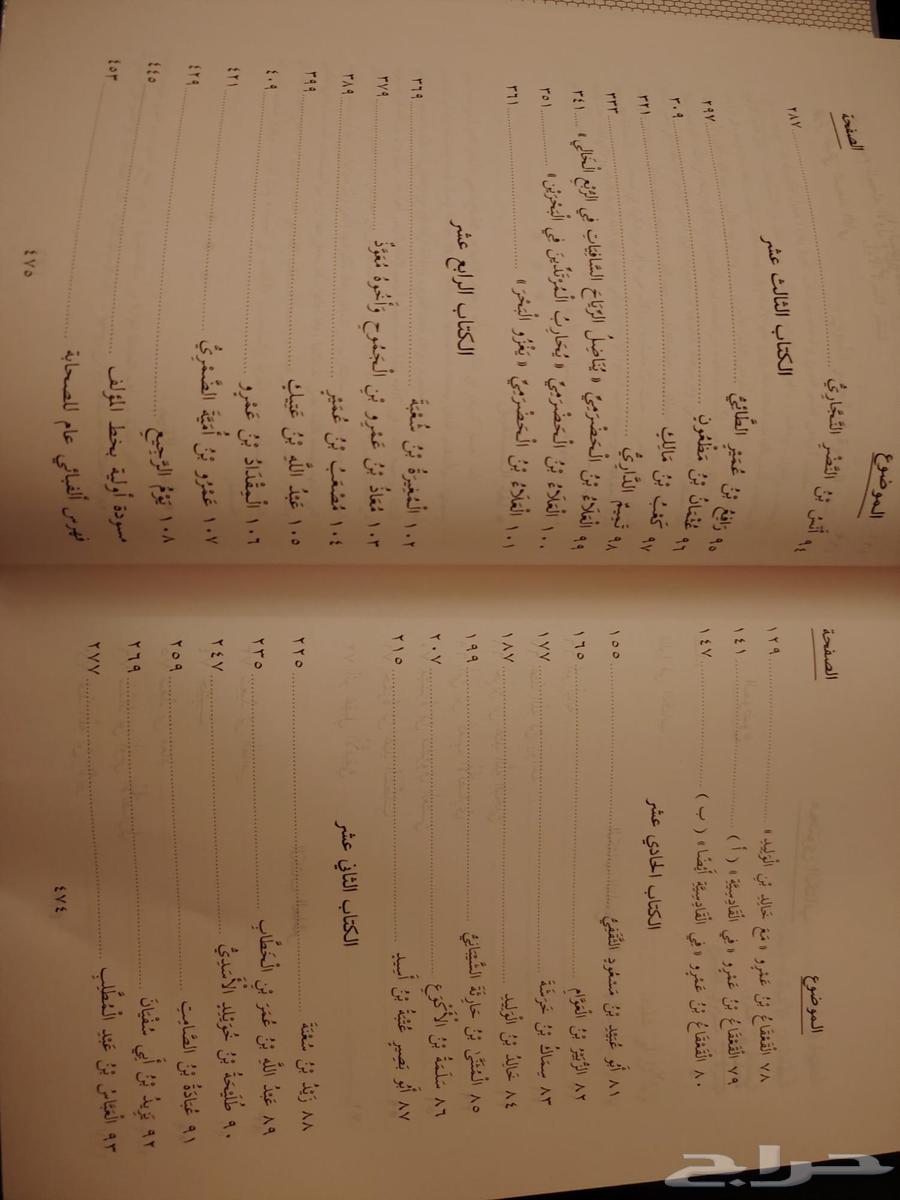 الموضوع
الصفحة
٧٨ الْقَعْقَاعُ بْنُ عَمْرٍو «مَعَ خَالِدِ بْنِ الْوَلِيدِ» ١٢٩
٧٩ الْقَعْقَاعُ بْنُ عَمْرٍو «فِي الْقَادِسِيَّةِ» ( أ ) ١٤١
٨٠ الْقَعْقَاعُ بْنُ عَمْرٍو «فِي الْقَادِسِيَّةِ أَيْضًا» ( ب ) ١٤٧
الكتاب الحادي عشر
٨١ أَبُو عُبَيْدِ بْنُ مَسْعُودٍ الثَّقَفِيُّ ١٥٥
٨٢ الزُّبَيْرُ بْنُ الْعَوَّامِ ١٦٥
٨٣ سِمَاكُ بْنُ خَرَشَةَ ١٧٧
٨٤ خَالِدُ بْنُ الْوَلِيدِ ١٨٧
٨٥ الْمُثَنَّى بْنُ حَارِثَةَ الشَّيْبَانِيُّ ١٩٩
٨٦ سَلَمَةُ بْنُ الْأَكْوَعِ ٢٠٧
٨٧ أَبُو بَصِيرٍ عُتْبَةُ بْنُ أَسِيدٍ ٢١٥
الكتاب الثاني عشر
٨٨ زَيْدُ بْنُ سُعْنَةَ ٢٢٥
٨٩ عَبْدُ اللَّهِ بْنُ عُمَرَ بْنِ الْخَطَّابِ ٢٣٥
٩٠ طُلَيْحَةُ بْنُ خُوَيْلِدٍ الْأَسَدِيُّ ٢٤٧
٩١ عُبَادَةُ بْنُ الصَّامِتِ ٢٥٩
٩٢ يَزِيدُ بْنُ أَبِي سُفْيَانَ ٢٦٩
٩٣ الْعَبَّاسُ بْنُ عَبْدِ الْمُطَّلِبِ ٢٧٧
٤٧٤
الموضوع
الصفحة
٩٤ أَنَسُ بْنُ النَّضْرِ النَّجَّارِيُّ ٢٨٧
الكتاب الثالث عشر
٩٥ رَافِعُ بْنُ عُمَيْرٍ الطَّائِيُّ ٢٩٧
٩٦ عُثْمَانُ بْنُ مَظْعُونٍ ٣٠٩
٩٧ كَعْبُ بْنُ مَالِكٍ ٣٢١
٩٨ تَمِيمٌ الدَّارِيُّ ٣٣٣
٩٩ الْعَلَاءُ بْنُ الْحَضْرَمِيِّ «يُنَاضِلُ الرِّيَاحَ السَّافِيَاتِ فِي الرُّبْعِ الْخَالِي» ٣٤١
١٠٠ الْعَلَاءُ بْنُ الْحَضْرَمِيِّ «يُحَارِبُ الْمُرْتَدِّينَ فِي الْبَحْرَيْنِ» ٣٥١
١٠١ الْعَلَاءُ بْنُ الْحَضْرَمِيِّ «يَغْزُو الْبَحْرَ» ٣٦١
الكتاب الرابع عشر
١٠٢ الْمُغِيرَةُ بْنُ شُعْبَةَ ٣٦٩
١٠٣ مُعَاذُ بْنُ عَمْرِو بْنِ الْجَمُوحِ وَأَخُوهُ مُعَوَّذٌ ٣٧٩
١٠٤ مُصْعَبُ بْنُ عُمَيْرٍ ٣٨٩
١٠٥ عَبْدُ اللَّهِ بْنُ عَتِيكٍ ٣٩٩
١٠٦ الْمِقْدَادُ بْنُ عَمْرٍو ٤٠٩
١٠٧ عَمْرُو بْنُ أُمَيَّةَ الضَّمْرِيُّ ٤٢١
١٠٨ يَوْمُ الرَّجِيعِ ٤٢٩
مسودة أولية بخط المؤلف ٤٤٥
فهرس ألفبائي عام للصحابة ٤٥٣
٤٧٥
حراج